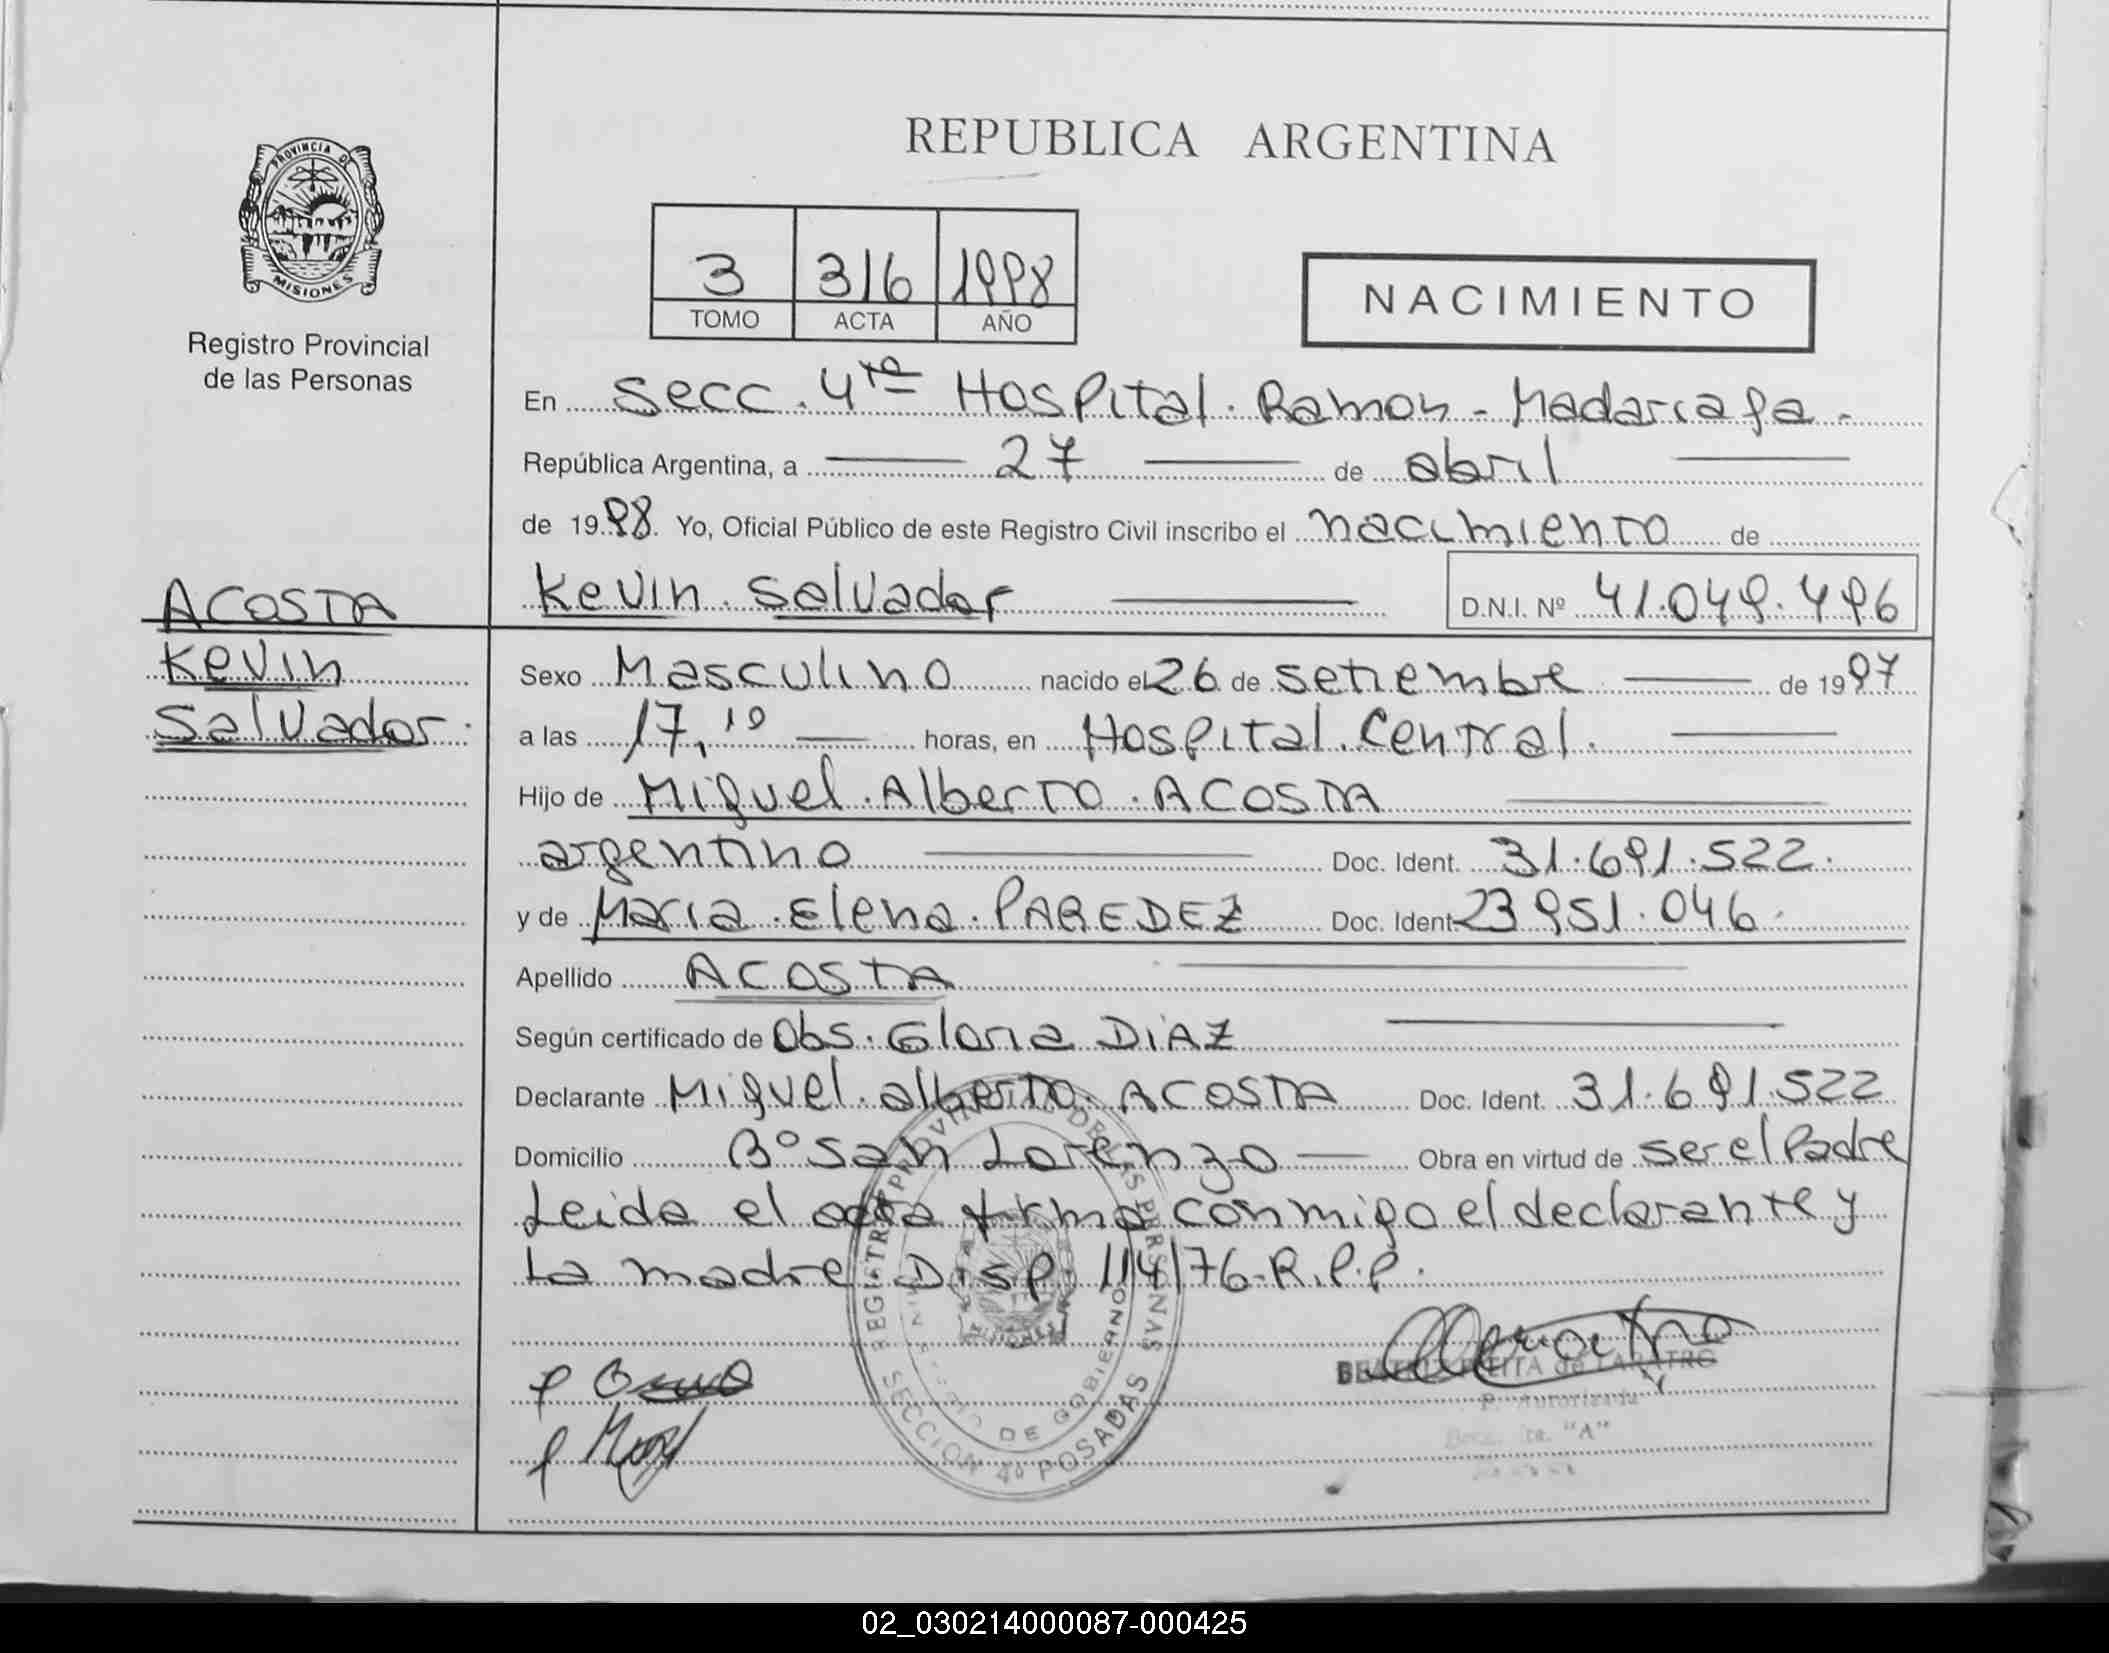 REPUBLICA ARGENTINA
PROVINCIA DE
MISIONES
Registro Provincial
de las Personas
3 316 1998
TOMO ACTA AÑO
NACIMIENTO
En Secc. 4ta Hospital. Ramon - Madariaga -
República Argentina, a 27 de abril
de 1998. Yo, Oficial Público de este Registro Civil inscribo el nacimiento de
Kevin Salvador D.N.I. Nº 41.049.496
ACOSTA
Kevin
Salvador.
Sexo Masculino nacido el 26 de setiembre de 1997
a las 17,10 horas, en Hospital Central.
Hijo de Miguel Alberto ACOSTA
argentino Doc. Ident. 31.691.522.
y de Maria Elena PAREDEZ Doc. Ident. 23.951.046.
Apellido ACOSTA
Según certificado de Obs. Gloria DiAZ
Declarante Miguel alberto ACOSTA Doc. Ident. 31.691.522
Domicilio Bº San Lorenzo Obra en virtud de ser el Padre
Leida el acta firma conmigo el declarante y
La madre Disp 114/76-R.P.P.
REGISTRO PROVINCIAL DE LAS PERSONAS
MINISTERIO DE GOBIERNO
SECCION 4º POSADAS
Autorizada
"A"
02_030214000087-000425